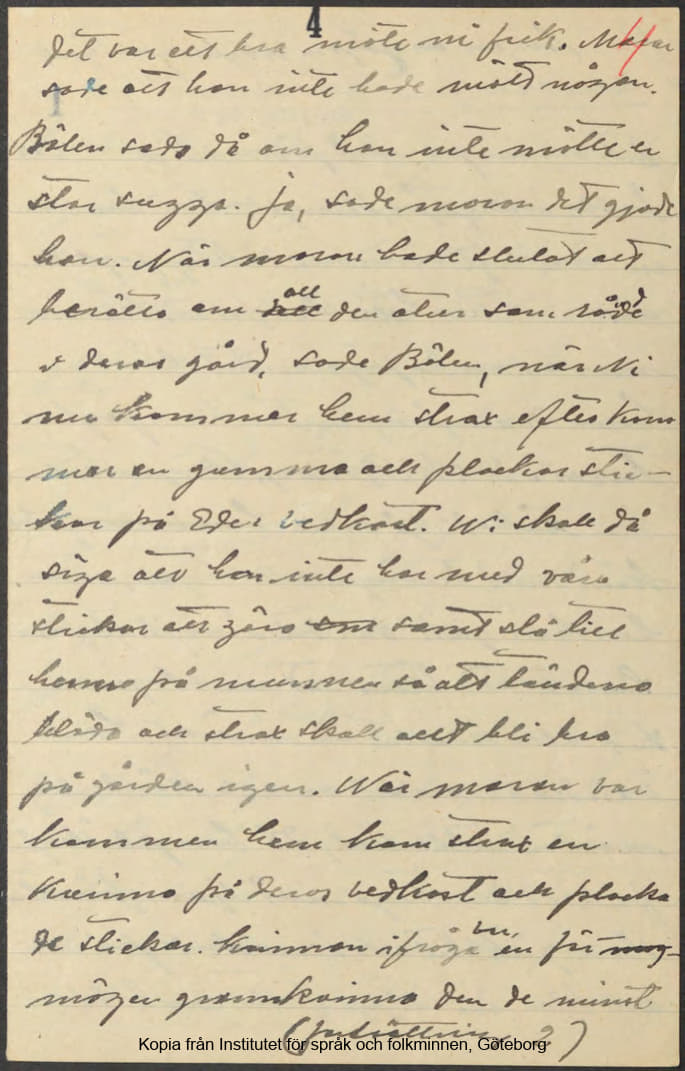 4
det var ett bra möte ni fick. Moran
sade att han inte hade mött någon.
Bölen sade då om han inte mötte en
stor sugga. Ja, sade moran det gjode
han. När moran hade slutat att
berätta om all den otur som rådde
i deras gård, sade Bölen, när Ni
nu kommer hem strax efter kom
mer en gumma och plockar stic-
kor på Eder vedkast. Ni skall då
säga att hon inte har med våra
stickor att göra samt slå till
henne på munnen så att tänderna
blöda och strax skall allt bli bra
på gården igen. När moran var
kommen hem kom strax en
kvinna på deras vedkast och plocka
de stickor. Kvinnan ifråga var en för
mögen grannkvinna den de minst
(fortsättning 2)
Kopia från Institutet för språk och folkminnen, Göteborg